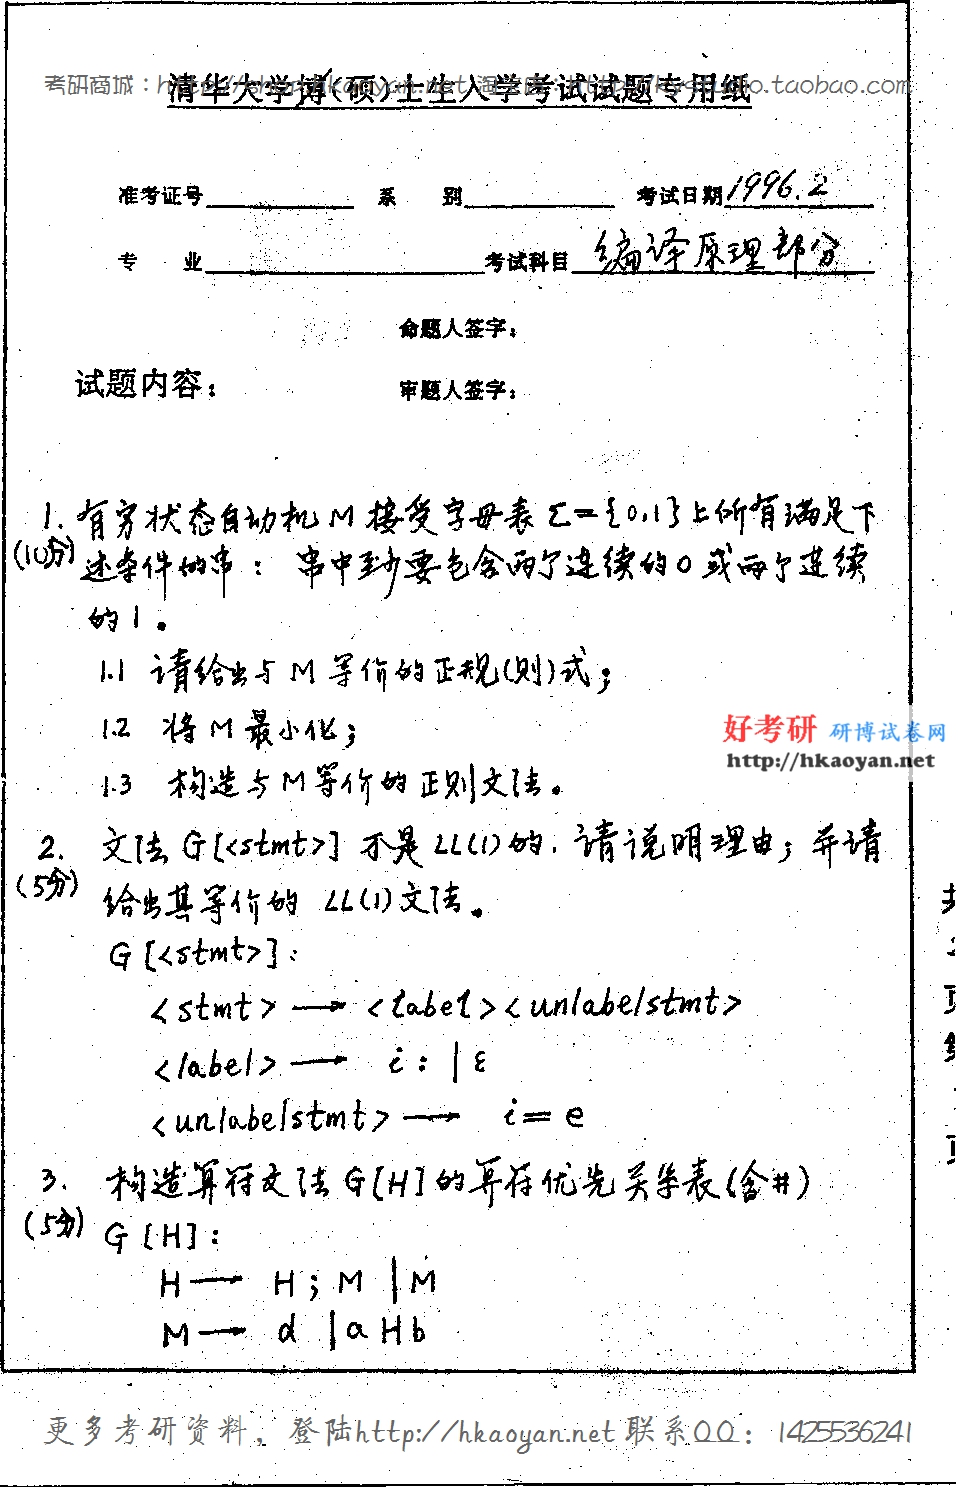 考研商城：http://shop.hkaoyan.net 淘
清华大学博(硕)士生入学考试试题专用纸
准考证号 系 别 考试日期 1996.2
专 业 考试科目 编译原理部分
命题人签字：
试题内容： 审题人签字：
1. 有穷状态自动机 M 接受字母表 Σ={0,1}上所有满足下
(10分) 述条件的串： 串中至少要包含两个连续的0或两个连续
的1。
1.1 请给出与 M 等价的正规(则)式；
1.2 将 M 最小化；
1.3 构造与M等价的正则文法。
好考研 研博试卷网
http://hkaoyan.net
2. 文法 G[<stmt>] 不是 LL(1)的. 请说明理由；并请
(5分) 给出其等价的 LL(1)文法。
G[<stmt>]:
<stmt> → <label><unlabelstmt>
<label> → i : | ε
<unlabelstmt> → i = e
3. 构造算符文法 G[H]的算符优先关系表(含#)
(5分) G[H]:
H → H ; M | M
M → d | a H b
页
页
更多考研资料，登陆http://hkaoyan.net 联系QQ：1425536241